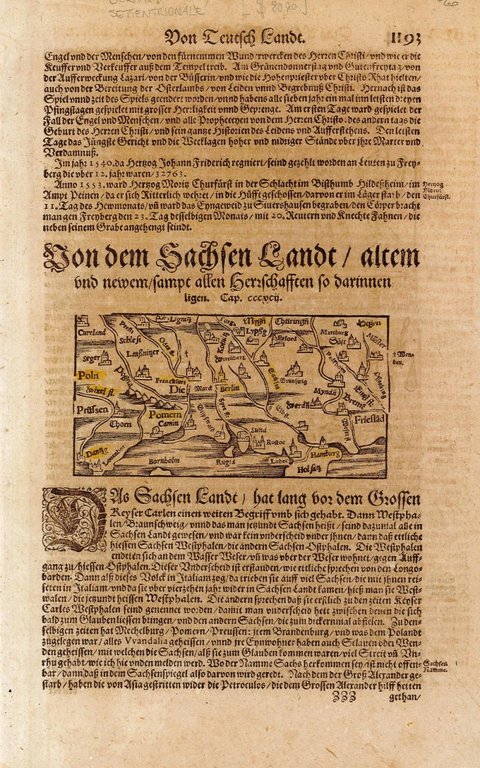 SETENTRIONALE [$ 80,00]
Von Teutsch Landt. 1193
Engel vnd der Menschen / von den fürnemmen Wunderwercken des Herren Christi / vnd wie er die
Keuffer vnd Verkeuffer auß dem Tempel treib. Am Grünendonnerstag vnd Gutenfreytag / von
der Aufferweckung Lazari / von der Büsserin / vnd wie die Hohenpriester vber Christo Rhat hielten /
auch von der Bereitung der Osterlambs / von Leiden vnnd Begrebnuß Christi. Hernach ist das
Spiel vnnd zeit des Spiels geendert worden / vnnd habens alle sieben jahr ein mal im letsten dreyen
Pfingsttagen gespielet mit grosser Herligkeit vnnd Geprenge. Am ersten Tage ward gespielet der
Fall der Engel vnd Menschen / vnd alle Propheceyen von dem Herren Christo: des andern tags die
Geburt des Herren Christi / vnd sein gantze Historien des Leidens vnd Aufferstehens. Den letsten
Tage das Jüngste Gericht vnd die Weeklagen hoher vnd nidriger Stände vber jhre Marter vnd
Verdamnuß.
Im jahr 1540. da Hertzog Johann Friderich regniert / seind gezehlt worden an Leuten zu Frey-
berg die vber 12. jahr waren / 32763.
Anno 1553. ward Hertzog Moritz Churfürst in der Schlacht im Bisthumb Hildeßheim / im
Ampt Peinen / da er sich Ritterlich wehret / in die Hüfft geschossen / daruon er im Läger starb / den
11. Tag des Hewmonats / vñ ward das Eyngeweid zu Siuershausen begraben / den Cörper bracht
man gen Freyberg den 23. Tag desselbigen Monats / mit 20. Reutern vnd Knechte Fahnen / die
neben seinem Grabe angehengt seindt.
Hertzog
Moritz
Churfürst.
Von dem Sachsen Landt / altem
vnd newem / sampt allen Herrschafften so darinnen
ligen. Cap. cccxcij.
Schlesi
Laußnitzer
Meissn
Lypsig
Thüringen
Hegen
Seger
Soest
Poln
Franckfurt
Die
Marck
Berlin
Brunswig
Mynde
Breme
Preüssen
Thorn
Pomern
Camin
Friesład
Dantzig
Rostoc
Bornholm
Rugia
Lubec
Hamburg
Holsatz
Das Sachsen Landt / hat lang vor dem Grossen
Keyser Carlen einen weiten Begriff vmb sich gehabt. Dann Westpha-
len / Braunschweig / vnnd das man jetzundt Sachsen heißt / seind dazumal alle in
Sachsen Landt gewesen / vnd war kein vnderscheid vnder jhnen / dann daß ettliche
hiessen Sachsen Westphalen / die andern Sachsen-Ostphalen. Die Westphalen
endeten sich an dem Wasser Weser / vñ was vber der Weser wohnet / gegen Auff-
gang zu / hiessen Ostphalen. Dieser Vnderscheid ist erstanden / wie ettliche sprechen von den Longo-
barden. Dann alß dieses Volck in Italiam zog / da trieben sie auß viel Sachsen / die mit jhnen rei-
seten in Italiam / vnd da sie vber viertzehen jahr wider in Sachsen Landt kamen / hieß man sie West-
phalen / die jenseidt hiessen Westphalen. Die andern sprechen daß sie erst lich zu den zeiten Keyser
Carles Westphalen seind genennet worden / damit man vnderscheid hett zwischen denen die sich
bald zum Glauben liessen bringen / vnd den andern Sachsen / die zum dickermal abfielen. Zu den
selbigen zeiten hat Mechelburg / Pomern / Preussen / item Brandenburg / vnd was dem Polandt
zugelegen war / alles Vvandalia geheissen / vnnd jre Eynwohner haben auch Sclauen oder Wen-
den geheissen / mit welchen die Sachsen / alß sie zum Glauben kommen waren / viel Streit vñ Vn-
rhu gehabt / wie ich hie vnden melden werd. Wo der Namme Sachs herkommen sey / ist nicht offen-
bar / dann daß in dem Sachsenspiegel also daruon wird geredt. Nach dem der Groß Alexander ge-
starb / haben die von Asia gestritten wider die Petroculos / die dem Grossen Alexander hilff hetten
Sachsen
Namme.
ZZZ gethan /